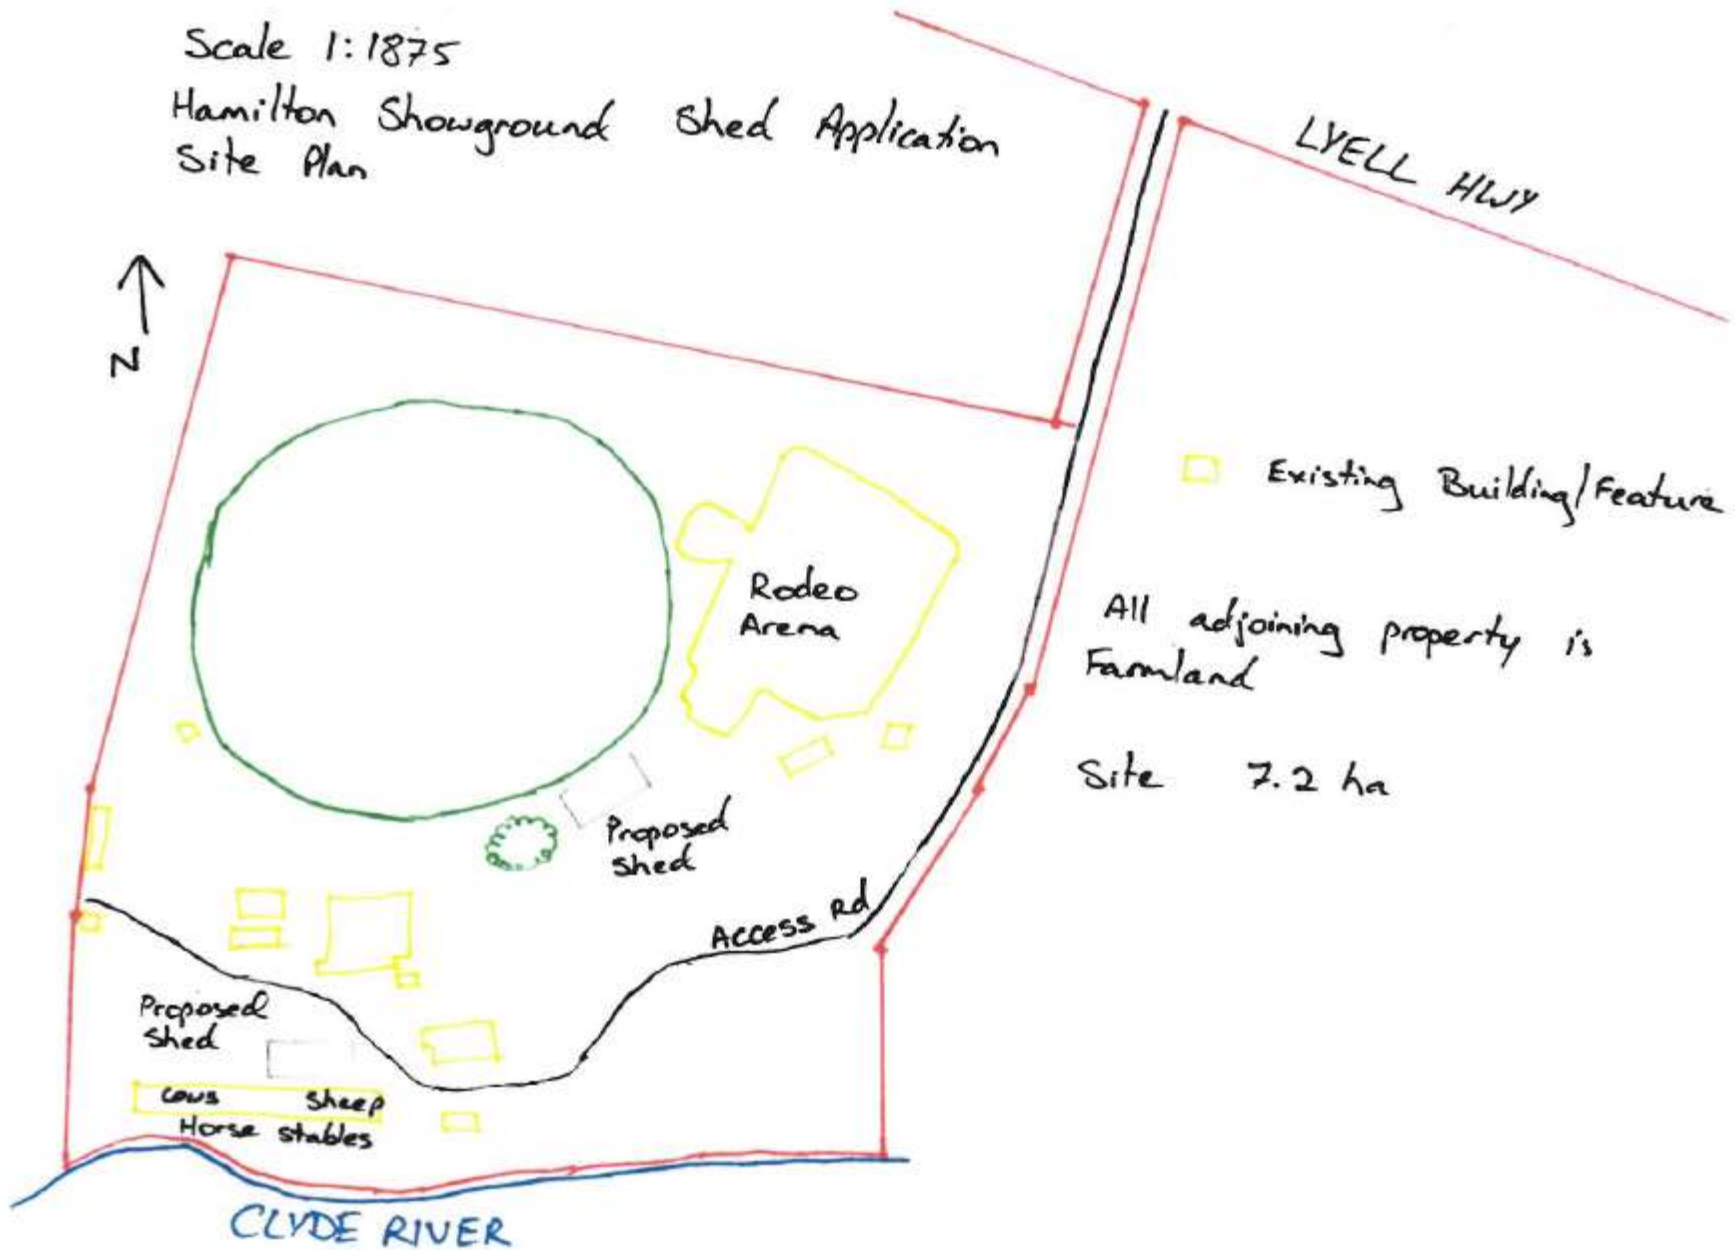 Scale 1:1875
Hamilton Showground Shed Application
Site Plan
LYELL HWY
N
Existing Building/Feature
Rodeo
Arena
All adjoining property is
Farmland
Site 7.2 ha
Proposed
Shed
Access Rd
Proposed
Shed
Cows Sheep
Horse stables
CLYDE RIVER